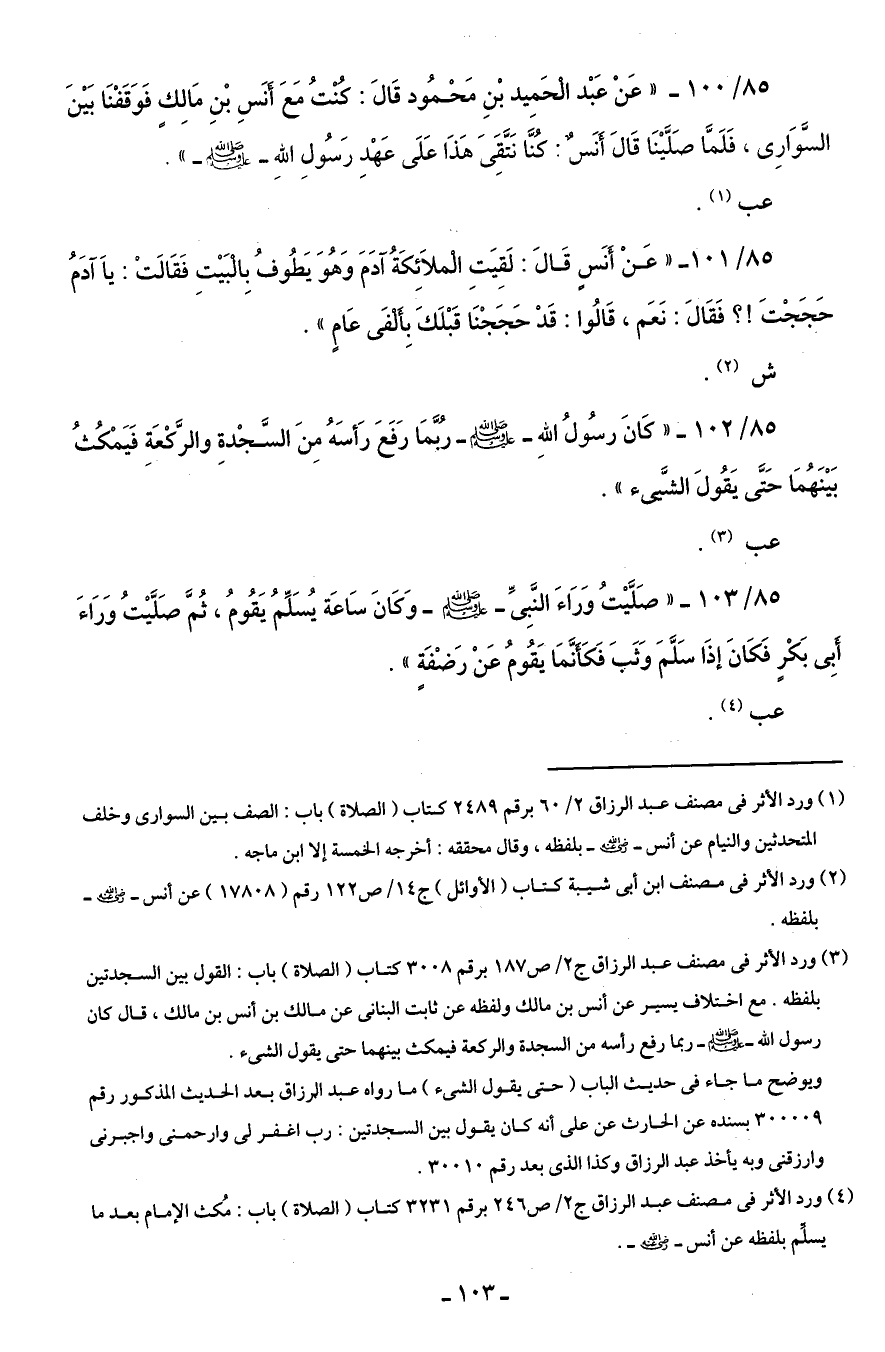 ٨٥/ ١٠٠ ـ « عَنْ عَبْد الْحَمِيد بْنِ مَحْـمُود قَالَ : كُنْتُ مَعَ أَنَسِ بْنِ مَالِكٍ فَوَقَفْنَا بَيْنَ
السَّوَارِى ، فَلَمَّا صَلَّيْنَا قَالَ أَنَسٌ : كُنَّا نَتَّقِىَ هَذَا عَلَى عَهْدِ رَسُولِ اللهِ ـ ﷺ ـ » .
عب (١) .
٨٥/ ١٠١ـ « عَـنْ أَنَسٍ قَـالَ : لَقِيَتِ الْملاَئِكَةُ آدَمَ وَهُوَ يَطُوفُ بِالْبَيْتِ فَقَالَتْ : ياَ آدَمُ
حَجَجْتَ !؟ فَقَالَ : نَعَم ، قَالُوا : قَدْ حَجَجْنَا قَبْلَكَ بِأَلْفَى عَامٍ » .
ش (٢) .
٨٥/ ١٠٢ ـ « كَانَ رسُولُ اللهِ ـ ﷺ ـ رُبَّمَا رَفَعَ رَأسَهُ مِنَ السَّـجْدةِ والرَّكْعَةِ فَيَمْكُثُ
بَيْنَهُمَا حَتَّى يَقُولَ الشَّيىء » .
عب (٣) .
٨٥/ ١٠٣ ـ « صلَّيْتُ وَرَاءَ النَّبِىِّ ـ ﷺ ـ وَكَانَ سَاعَة يُسَلِّمُ يَقُومُ ، ثُمَّ صَلَّيْت وَرَاءَ
أَبِى بَكْرٍ فَكَانَ إِذَا سَلَّمَ وَثَبَ فَكَأَنَّمَا يَقُومُ عَنْ رَضْفَةٍ » .
عب (٤) .
(١) ورد الأثر فى مصنف عبد الرزاق ٢/ ٦٠ برقم ٢٤٨٩ كتاب ( الصلاة ) باب : الصف بين السوارى وخلف
المتحدثين والنيام عن أنس ـ رضي الله عنه ـ بلفظه ، وقال محققه : أخرجه الخمسة إلا ابن ماجه .
(٢) ورد الأثر فى مصنف ابن أبى شيبة كتاب ( الأوائل ) ج١٤/ ص١٢٢ رقم ( ١٧٨٠٨ ) عن أنس ـ رضي الله عنه ـ
بلفظه .
(٣) ورد الأثر فى مصنف عبد الرزاق ج٢/ ص١٨٧ برقم ٣٠٠٨ كتاب ( الصلاة ) باب : القول بين السجدتين
بلفظه . مع اختلاف يسير عن أنس بن مالك ولفظه عن ثابت البنانى عن مالك بن أنس بن مالك ، قال كان
رسول الله ـ ﷺ ـ ربما رفع رأسه من السجدة والركعة فيمكث بينهما حتى يقول الشىء .
ويوضح ما جاء فى حديث الباب ( حتى يقول الشىء ) ما رواه عبد الرزاق بعد الحديث المذكور رقم
٣٠٠٠٠٩ بسنده عن الحارث عن على أنه كان يقول بين السجدتين : رب اغفر لى وارحمنى واجبرنى
وارزقنى وبه يأخذ عبد الرزاق وكذا الذى بعد رقم ٣٠٠١٠ .
(٤) ورد الأثر فى مصنف عبد الرزاق ج٢/ ص٢٤٦ برقم ٣٢٣١ كتاب ( الصلاة ) باب : مُكث الإمام بعد ما
يسلِّم بلفظه عن أنس ـ رضي الله عنه ـ .
ـ ١٠٣ ـ